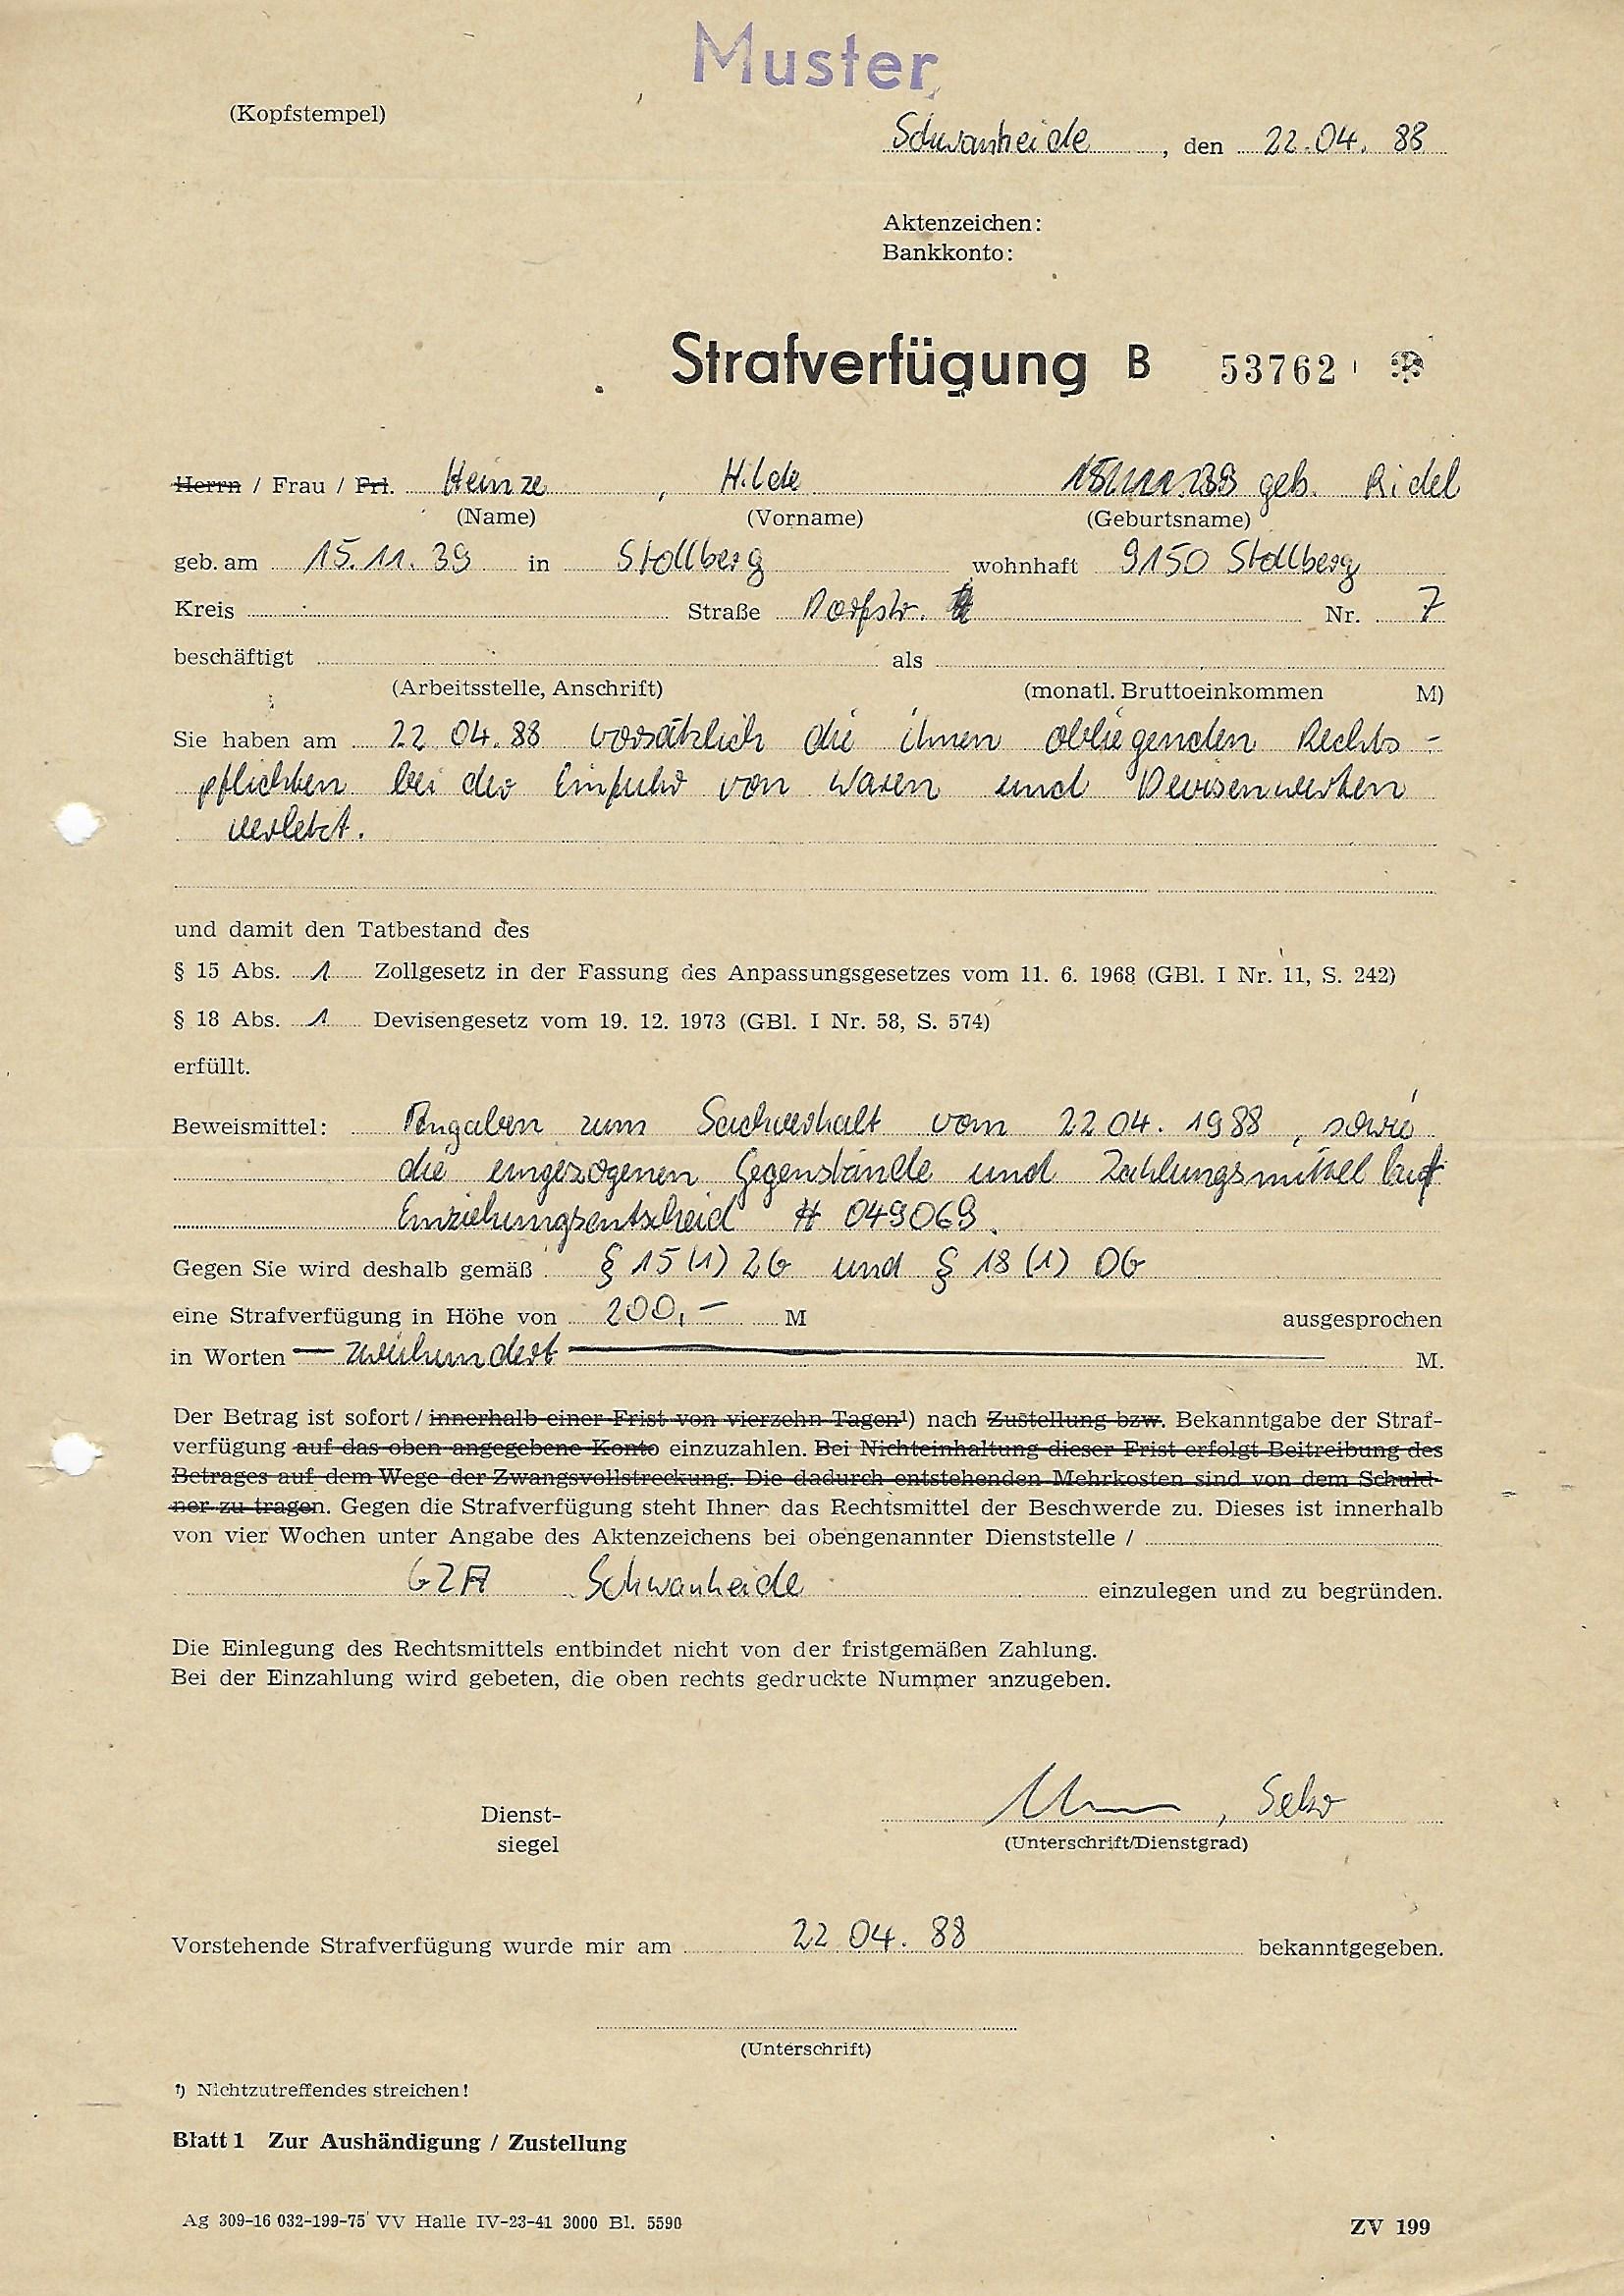 Muster
(Kopfstempel)
Schwanheide , den 22.04. 88
Aktenzeichen:
Bankkonto:
Strafverfügung B 53762
Herrn / Frau / Frl. Heinze , Hilde geb. Ridel
(Name) (Vorname) (Geburtsname)
geb. am 15. 11. 39 in Stollberg wohnhaft 9150 Stollberg
Kreis Straße Dorfstr. Nr. 7
beschäftigt als
(Arbeitsstelle, Anschrift) (monatl. Bruttoeinkommen M)
Sie haben am 22 04. 88 vorsätzlich die ihnen obliegenden Rechts-
pflichten bei der Einfuhr von Waren und Devisenwerten
verletzt.
und damit den Tatbestand des
§ 15 Abs. 1 Zollgesetz in der Fassung des Anpassungsgesetzes vom 11. 6. 1968 (GBl. I Nr. 11, S. 242)
§ 18 Abs. 1 Devisengesetz vom 19. 12. 1973 (GBl. I Nr. 58, S. 574)
erfüllt.
Beweismittel: Angaben zum Sachverhalt vom 22 04. 1988, sowie
die eingezogenen Gegenstände und Zahlungsmittel laut
Einziehungsentscheid # 049069.
Gegen Sie wird deshalb gemäß § 15 (1) ZG und § 18 (1) DG
eine Strafverfügung in Höhe von 200,– M ausgesprochen
in Worten — zweihundert — M.
Der Betrag ist sofort / innerhalb einer Frist von vierzehn Tagen¹) nach Zustellung bzw. Bekanntgabe der Straf-
verfügung auf das oben angegebene Konto einzuzahlen. Bei Nichteinhaltung dieser Frist erfolgt Beitreibung des
Betrages auf dem Wege der Zwangsvollstreckung. Die dadurch entstehenden Mehrkosten sind von dem Schuld-
ner zu tragen. Gegen die Strafverfügung steht Ihnen das Rechtsmittel der Beschwerde zu. Dieses ist innerhalb
von vier Wochen unter Angabe des Aktenzeichens bei obengenannter Dienststelle /
GZA Schwanheide einzulegen und zu begründen.
Die Einlegung des Rechtsmittels entbindet nicht von der fristgemäßen Zahlung.
Bei der Einzahlung wird gebeten, die oben rechts gedruckte Nummer anzugeben.
Dienst-
siegel
, Sekr
(Unterschrift/Dienstgrad)
Vorstehende Strafverfügung wurde mir am 22 04. 88 bekanntgegeben.
(Unterschrift)
¹) Nichtzutreffendes streichen!
Blatt 1 Zur Aushändigung / Zustellung
Ag 309-16 032-199-75 VV Halle IV-23-41 3000 Bl. 5590
ZV 199